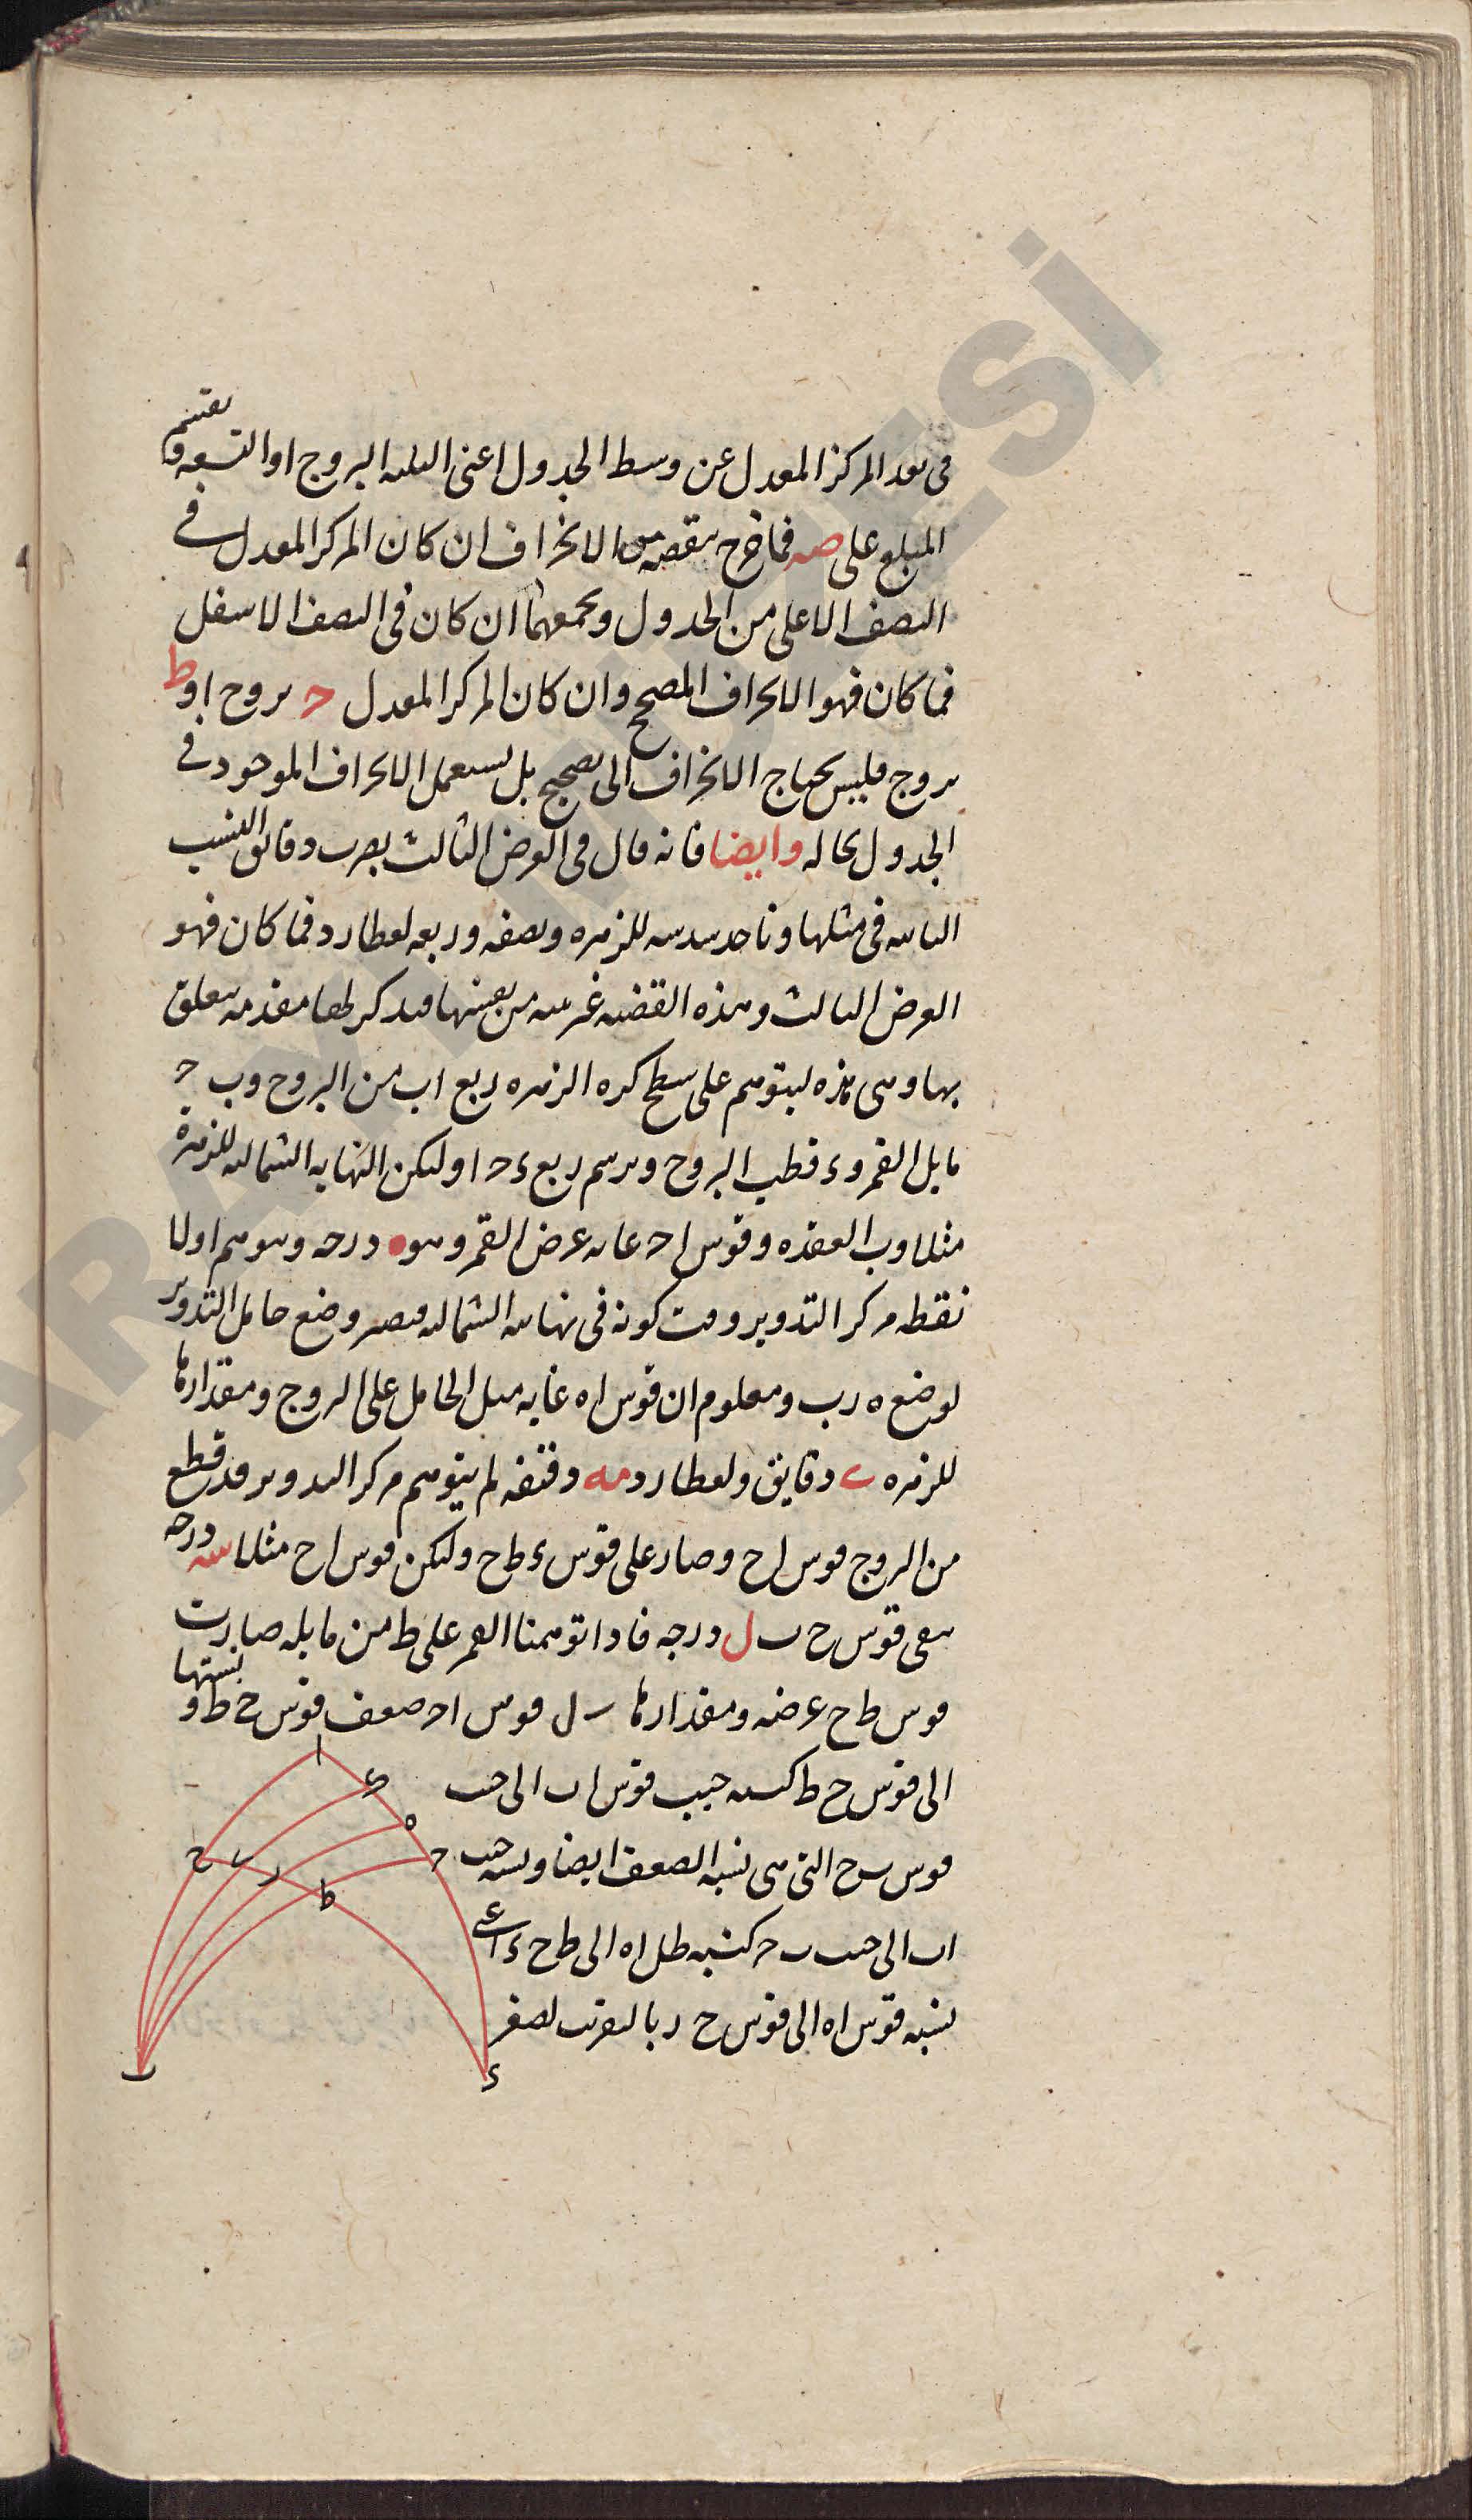 في بعد المركز المعدل عن وسط الجدول اعنى الثلثه البروج او التسعه و يقسم
المبلغ على صه فما خرج ينقصه من الانحراف ان كان المركز المعدل في
النصف الاعلى من الجدول ويجمعهما ان كان في النصف الاسفل
فما كان فهو الانحراف المصحح وان كان المركز المعدل ح بروج او ط
بروج فليس يحتاج الانحراف الى تصحيح بل يستعمل الانحراف الموجود في
الجدول بحاله وايضا فانه قال في العرض الثالث يضرب دقائق النسب
الثانيه في مثلها وناخذ سدسه للزهره ونصفه وربعه لعطارد فما كان فهو
العرض الثالث وهذه القضيه غريبه من بعينها فيذكر لها مقدمه يتعلق
بها وهي هذه ليتوهم على سطح كره الزهره ربع اب من البروج وب ح
مايل القمر و ء قطب البروج ويرسم ربع ء ح ا وليكن النهايه الشماليه للزهرة
مثلا وب العقده وقوس ا ح غايه عرض القمر وهو ه درجه وهو هم اولا
نقطه مركز التدوير وقت كونه في نهايته الشماليه فيصير وضع حامل التدوير
لوضع ه ر ب ومعلوم ان قوس ا ه غايه ميل الحامل على البروج ومقدارها
للزهره ى دقايق ولعطارد مه دقيقه لم يتوهم مركز التدوير قد قطع
من البروج قوس ا ح وصار على قوس ء ط ح وليكن قوس ا ح مثلا سه درجه
يبقى قوس ح ب ل درجه فاذا توهمنا القمر على ط من مايله صارت
قوس ط ح عرضه ومقدارها ب ل قوس ا ح ضعف قوس ح ط و نسبتها
الى قوس ح ط كنسبه جيب قوس ا ب الى جيب
قوس ب ح التي هي نسبه الضعف ايضا ونسبه جيب
ا ب الى جيب ب ح كنسبه ظل ا ه الى ط ح ء اعني
نسبه قوس ا ه الى قوس ح ر بالتقريب لصغر
ا
ى
ه
ح
ح
ى
ر
ط
ب
ء